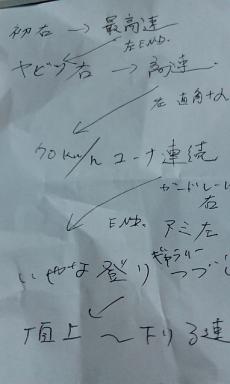 初右 → 最高速
左END.
ヤビツ右 → 高速
左 直角ナメ
70km/h コーナ連続
ガードレール
右
END. アミ左
いやな登り ギャラリー つづく
頂上 〜 下り 3連